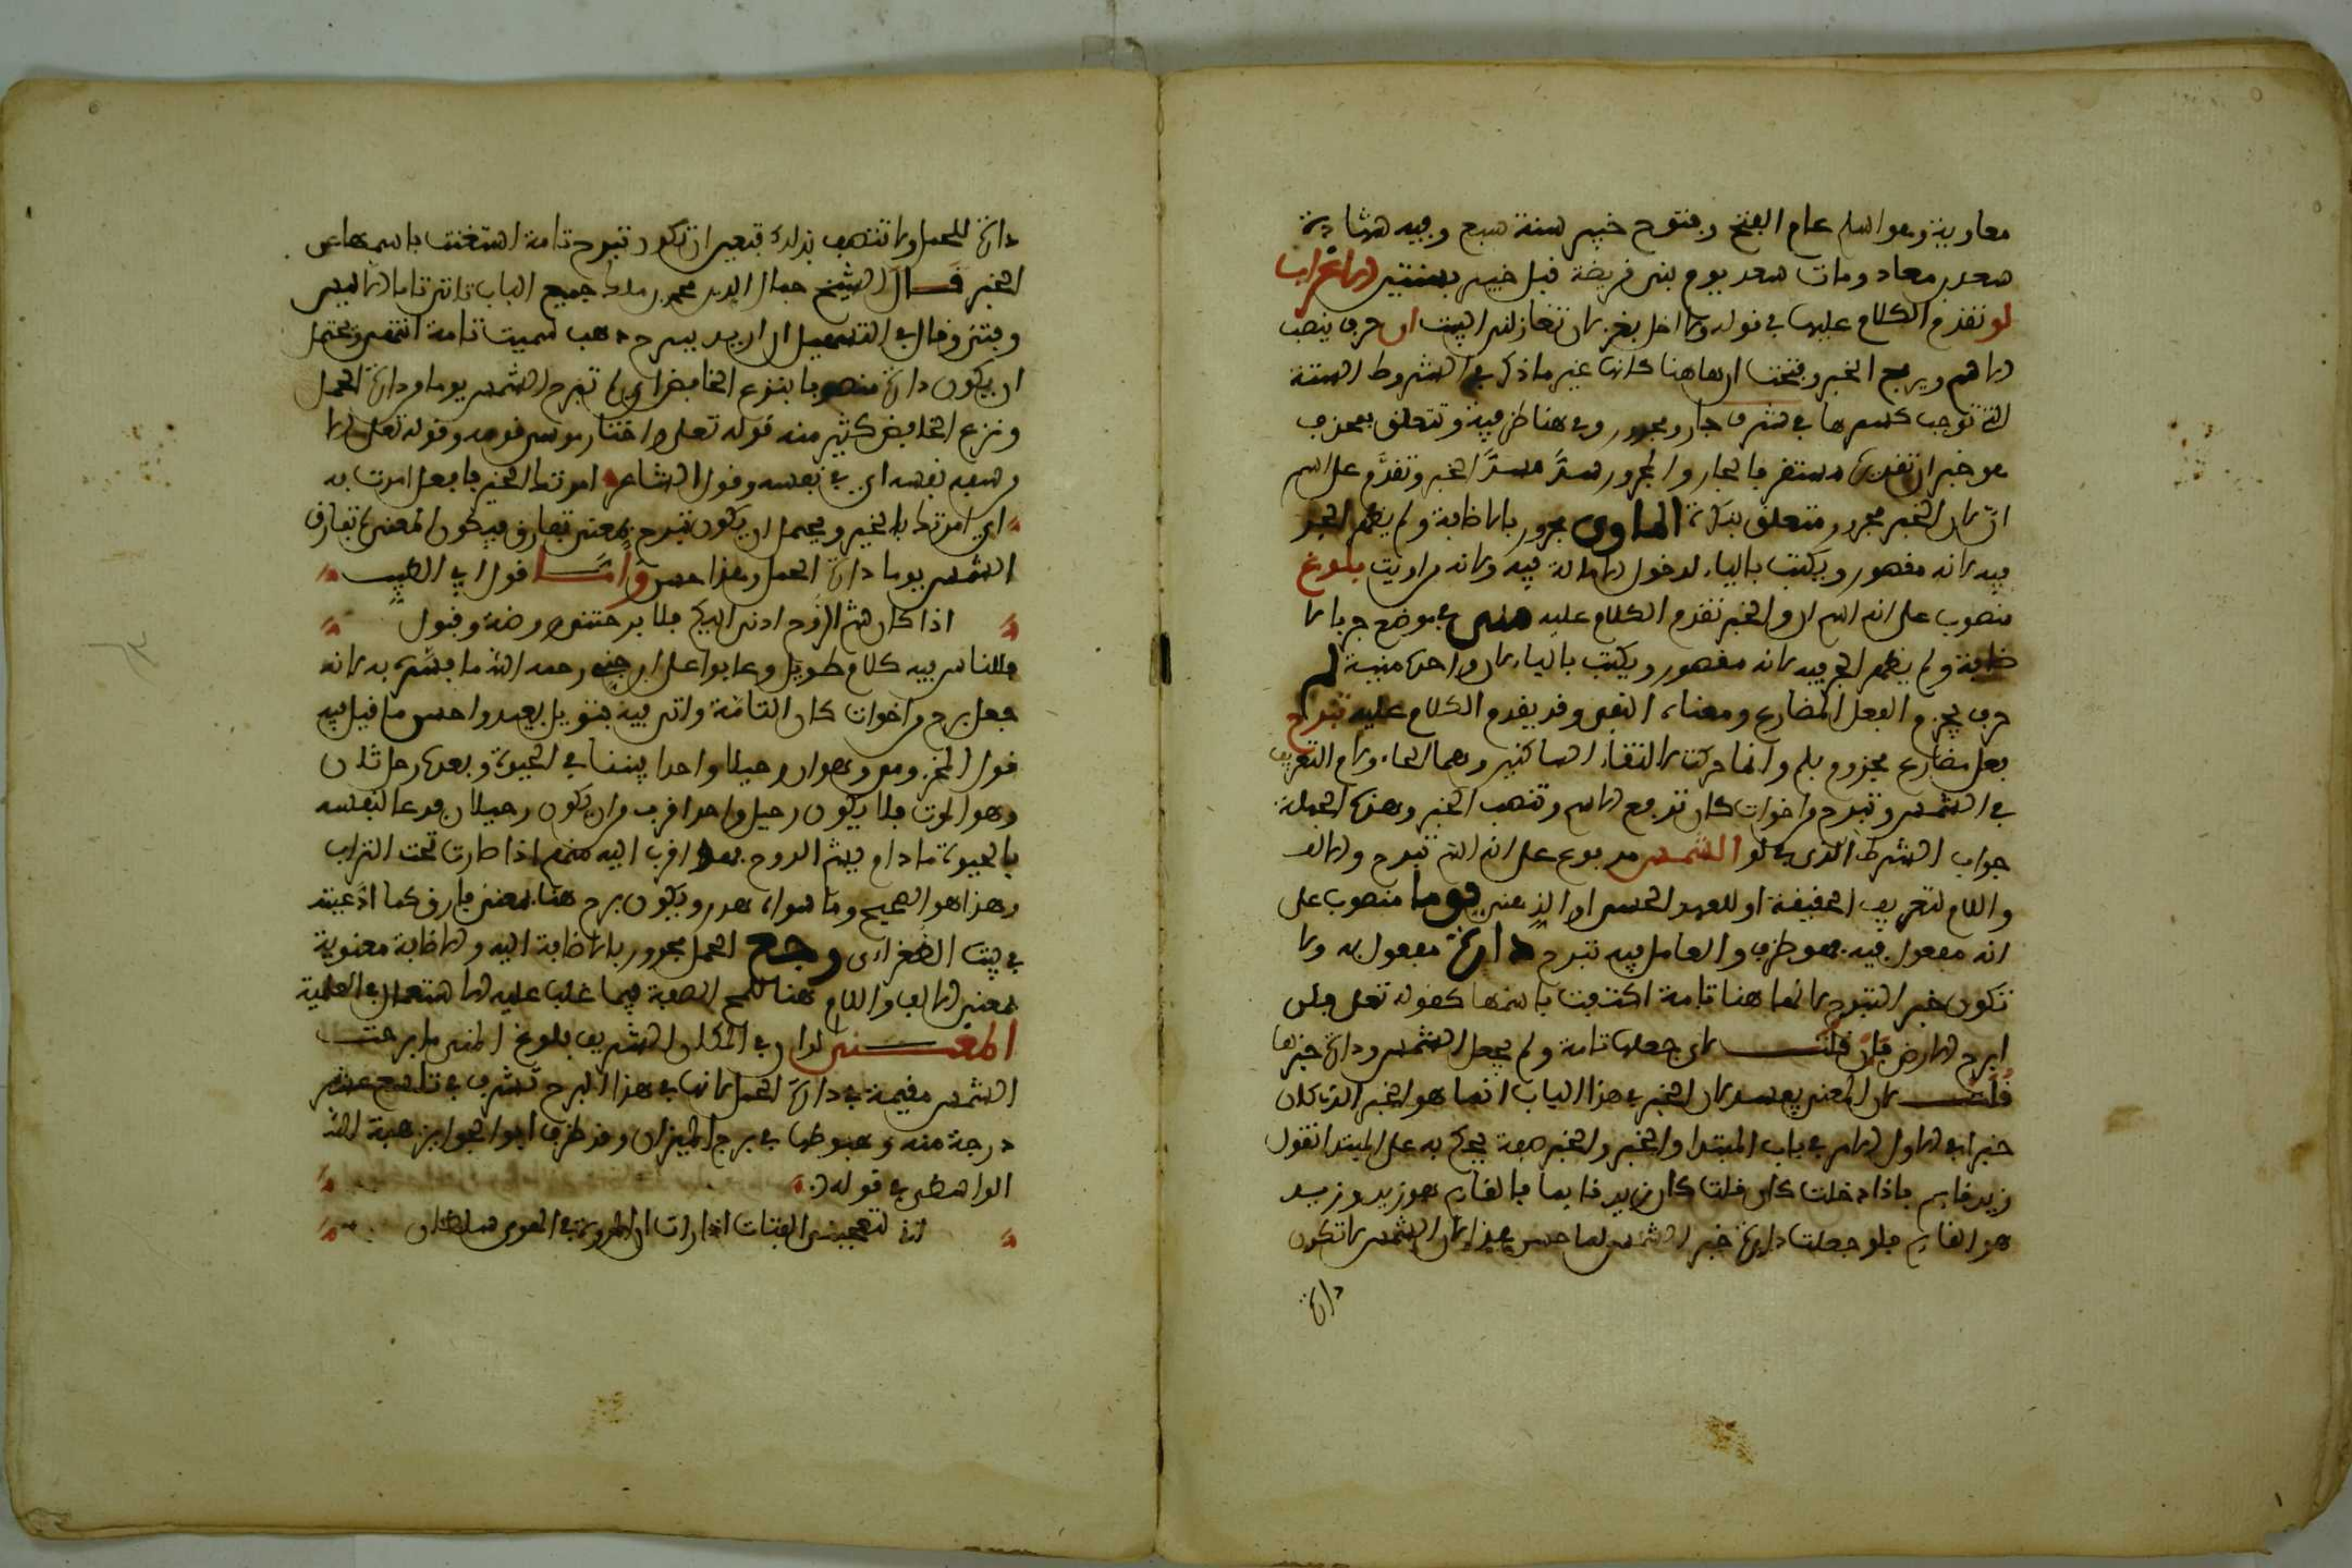 معاوية وهو اسلم عام الفتح وفتوح خيبر سنة سبع وفيه شهادة
سعد بن معاد ومات سعد يوم بني قريضة قبل خيبر بسنتين الاعراب
لو تقدم الكلام عليها في قوله ولا اخل بغزلان تغازلني البيت ان حرف ينصب
الاسم ويرفع الخبر وفتحت ان هاهنا لانها غير ما ذكر في الشروط الستة
التي توجب كسرها في شرف جار ومجرور وفي هنا ظرفية وتتعلق بمحذوف
هو خبر ان تقديره مستقر فالجار والمجرور سد مسد الخبر وتقدم على اسم
ان لان الخبر مجرور متعلق بنكرة الماوى مجرور بالاضافة ولم يظهر الجر
فيه لانه مقصور ويكتب بالياء لدخول الامالة فيه ولانه من اويت بلوغ
منصوب على انه اسم ان والخبر تقدم الكلام عليه منى في موضع جر بالا
ضافة ولم يظهر الجر فيه لانه مقصور ويكتب بالياء لان واحده منية لم
حرف يجزم الفعل المضارع ومعناه النفي وقد يقدم الكلام عليه تبرح
فعل مضارع مجزوم بلم وانما حركت لالتقاء الساكنين وهما الحاء ولام التعريف
في الشمس وتبرح من اخوات كان ترفع الاسم وتنصب الخبر وهذه الجملة
جواب الشرط الذي في لو الشمس مرفوع على انه اسم تبرح والالف
واللام لتعريف الحقيقة او للعهد الحسي او الذهني يوما منصوب على
انه مفعول فيه فهو ظرف والعامل فيه تبرح دارة مفعول به ولا
تكون خبر التبرح لانها هنا تامة اكتفت باسمها كقوله تعلى فلن
ابرح الارض فان قلت لاي جعلها تامة ولم يجعل الشمس ودارة خبرها
قلت لان المعنى يفسد لان الخبر في هذا الباب انما هو الخبر الذي كان
خبرا في الاول الامر في باب المبتدا والخبر والخبر صفة يحكم به على المبتدا تقول
زيد قايم فاذا دخلت كان قلت كان زيد قايما فالقايم هو زيد وزيد
هو القايم فلو جعلت دارة خبر الشمس لما حسن هذا لان الشمس لا تكون
دارة
دارة للحمل ولا تتصف بذلك فتعين ان تكون تبرح تامة استغنت باسمها عن
الخبر قال الشيخ جمال الدين محمد بن ملك جميع الباب تاتي تاما الا ليس
وفتئ وقال في التسهيل ان اريد ببرح ذهب سميت تامة انتهى ويحتمل
ان يكون دارة منصوبا بنزع الخافض اي لم تبرح الشمس يوما من دارة الحمل
ونزع الخافض كثير منه قوله تعلى واختار موسى قومه وقوله تعلى الا
من سفه نفسه اي في نفسه وقول الشاعر امرتك الخير فافعل ما امرت به
اي امرتك بالخير ويحتمل ان يكون تبرح بمعنى تفارق فيكون المعنى لم تفارق
الشمس يوما دارة الحمل وهذا حسن واما قول ابي الطيب
اذا كان شم الروح ادنى اليكم فلا برحتني روضة وقبول
فللناس فيه كلام طويل وعابوا على ابن جني رحمه الله ما فسره به لانه
جعل برح من اخوات كان التامة واتى فيه بتويل بعيد واحسن ما قيل فيه
قول المخزومي وهو ان رحيلا واحدا بيننا في الحيوة وبعده رحل ثان
وهو الموت فلا يكون رحيل واحد اقرب من ان يكون رحيلان فدعا لنفسه
بالحيوة ما دام فيه الروح فهو اقرب اليه منهم اذا صارت تحت التراب
وهذا هو الصحيح وما سواه هدر ويكون برح هنا بمعنى فارق كما ادعيته
في بيت الطغراءى رجع الحمل مجرور بالاضافة اليه والاضافة معنوية
بمعنى والالف واللام هنا للمح الصفة فيما غلب عليه الاستعمال في العلمية
المعنى لو ان في المكان الشريف بلوغ المنى ما برحت
الشمس مقيمة في دارة الحمل لانها في هذا البرج تشرف في تاسع عشر
درجة منه وهبوطها في برج الميزان وقد ظرف ابو الجوايز هبة الله
الواسطى في قوله
لتعجبني الفتات اذا رات ان المروة في الهوى سلطان